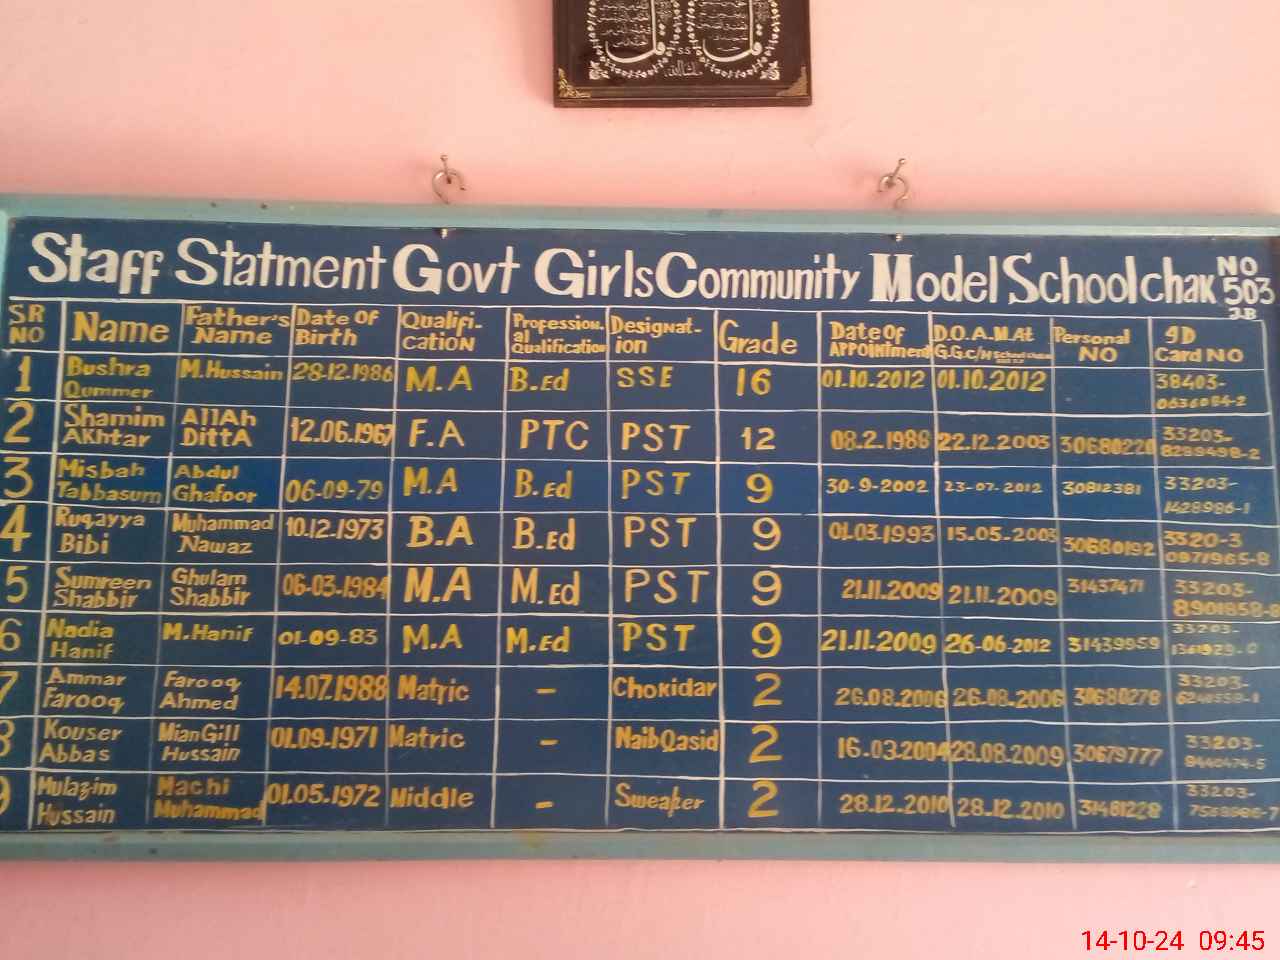 Staff Statment Govt Girls Community Model School chak NO 503 J.B
SR NO Name Father's Name Date Of Birth Qualifi-cation Profession.al Qualification Designat-ion Grade Date Of Appointment D.O.A.M.At G.G.C/H School Personal NO ID Card NO
1 Bushra Qummer M.Hussain 28-12-1986 M.A B.Ed SSE 16 01.10.2012 01.10.2012 38403-0636084-2
2 Shamim Akhtar Allah Ditta 12.06.1967 F.A PTC PST 12 08.2.1986 22.12.2003 30680220 33203-8289498-2
3 Misbah Tabbasum Abdul Ghafoor 06-09-79 M.A B.Ed PST 9 30-9-2002 23-07-2012 30812381 33203-1428986-1
4 Ruqayya Bibi Muhammad Nawaz 10.12.1973 B.A B.Ed PST 9 01.03.1993 15.05.2003 30680192 3320-3 0971965-8
5 Sumreen Shabbir Ghulam Shabbir 06-03-1984 M.A M.Ed PST 9 21.11.2009 21.11.2009 31437471 33203-8901858-8
6 Nadia Hanif M.Hanif 01-09-83 M.A M.Ed PST 9 21.11.2009 26-06-2012 31439959 33203-
7 Ammar Farooq Farooq Ahmed 14.07.1988 Matric - Chokidar 2 26.08.2006 26.08.2006 30680278 33203-
8 Kouser Abbas Mian Gill Hussain 01.09.1971 Matric - Naib Qasid 2 16.03.2004 28.08.2009 30679777 33203-8440474-5
9 Mulazim Hussain Machi Muhammad 01.05.1972 Middle - Sweaper 2 28.12.2010 28.12.2010 31461228 33203-
14-10-24 09:45